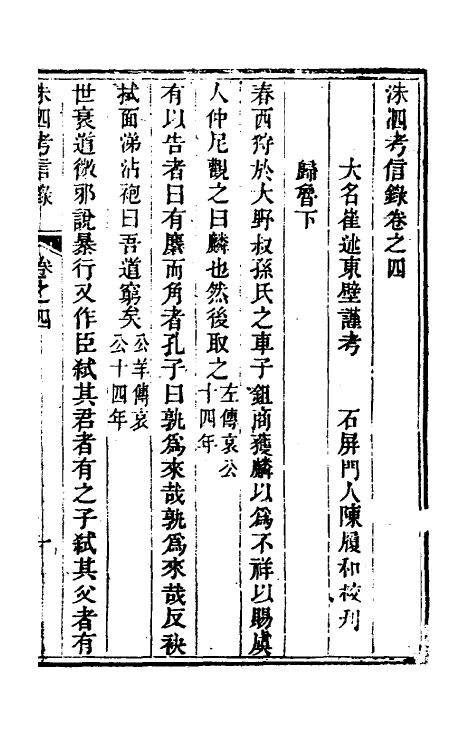 洙泗考信錄卷之四
大名崔述東壁謹考　石屏門人陳履和校刋
歸魯下
春西狩於大野叔孫氏之車子鉏商獲麟以為不祥以賜虞
人仲尼觀之曰麟也然後取之左傳哀公十四年
有以告者曰有麏而角者孔子曰孰為來哉孰為來哉反袂
拭面涕沾袍曰吾道窮矣公羊傳哀公十四年
世衰道微邪說暴行又作臣弒其君者有之子弒其父者有
洙泗考信錄　卷之四　一